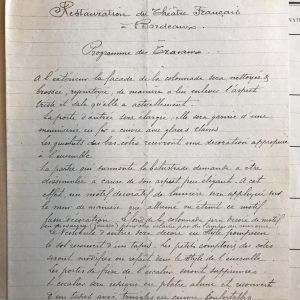 Restauration du Théâtre Français
à Bordeaux
Programme des Travaux
A l'extérieur la façade de la colonnade sera nettoyée &
brossée, rejointoyée, de manière à lui enlever l'aspect
triste et sale qu'elle a actuellement.
La porte d'entrée sera élargie, elle sera garnie d'une
menuiserie en fer & cuivre aux glaces claires
les guichets des bas-côtés recevront une décoration appropriée
à l'ensemble
La partie qui surmonte la balustrade demande à être
dissimulée à cause de son aspect peu élégant. A cet
effet, un motif décoratif de lumière sera appliqué sur
le mur de manière que allumé ou éteint ce motif
fasse décoration. Le fond de la colonnade sera décoré de motifs
Le vestibule d'entrée sera décoré de style
le sol recouvert d'un tapis. Les petits comptoirs des côtés
seront modifiés ou refait dans le style de l'ensemble
les portes de fers de l'escalier seront supprimées
l'escalier sera repeint en plâtre, aluminé et recouvert
d'un tapis avec tringles en cuivre